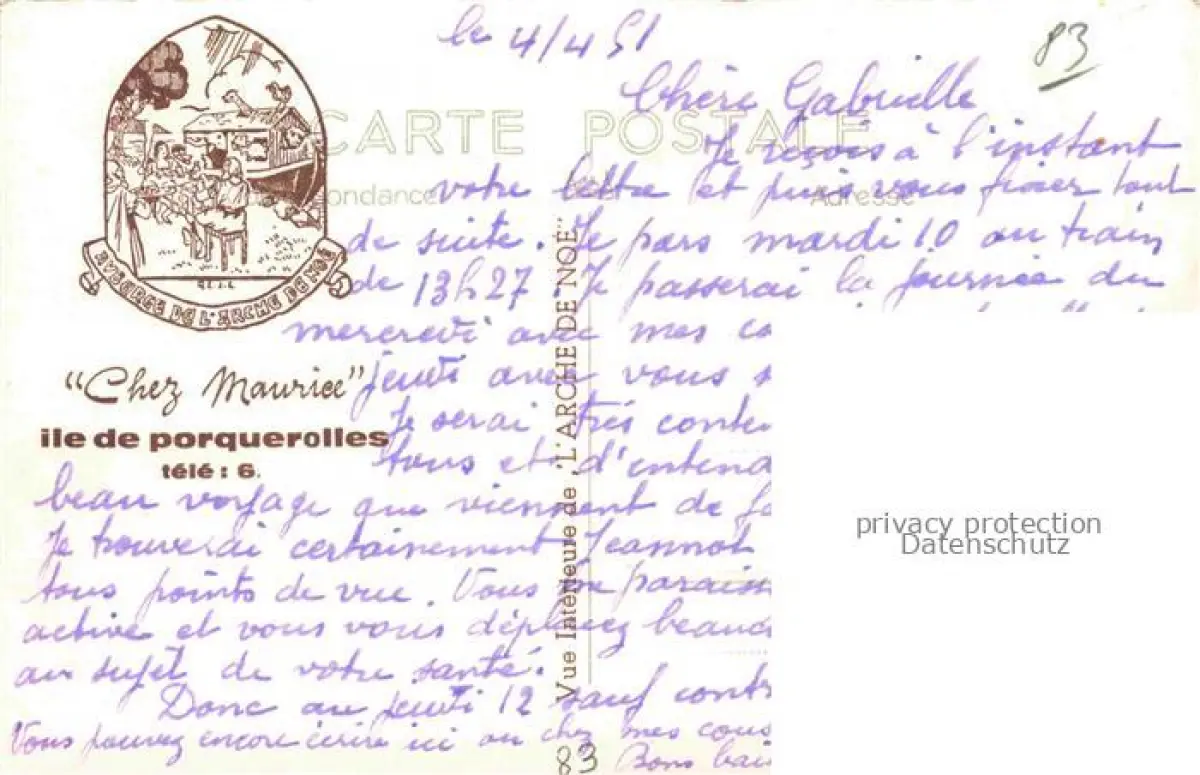 le 4/4 51
83
CARTE POSTALE
Chère Gabrielle
Je reçois à l'instant
ondance
Adresse
votre lettre et puis vous fixer tout
de suite. Je pars mardi 10 au train
de 13h27. Je passerai la journée du
mercredi avec mes co
jeudi avec vous
Je serai très conte
tous et d'entend
beau voyage que viennent de fa
Je trouverai certainement Jeannot
tous points de vue. Vous me paraiss
active et vous vous déplacez beauc
au sujet de votre santé.
Donc au jeudi 12 sauf contr
Vous pouvez encore écrire ici ou chez mes cous
Bons bai
AUBERGE DE L'ARCHE DE NOÉ
"Chez Maurice"
ile de porquerolles
télé : 6.
Vue Intérieure de "L'ARCHE DE NOË"
83
privacy protection
Datenschutz